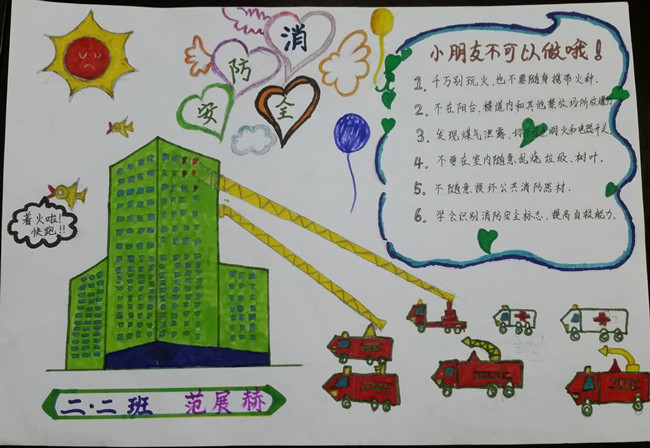 消
防
安
全
小朋友不可以做哦！
1. 千万别玩火,也不要随身携带火种.
2. 不在阳台、楼道内和其他禁放场所放爆竹
3. 发现煤气泄露,切勿明火和电器开关.
4. 不要在室内随意乱烧垃圾、树叶.
5. 不随意损坏公共消防器材.
6. 学会识别消防安全标志,提高自救能力.
着火啦!
快跑!!
二·二班 范展赫